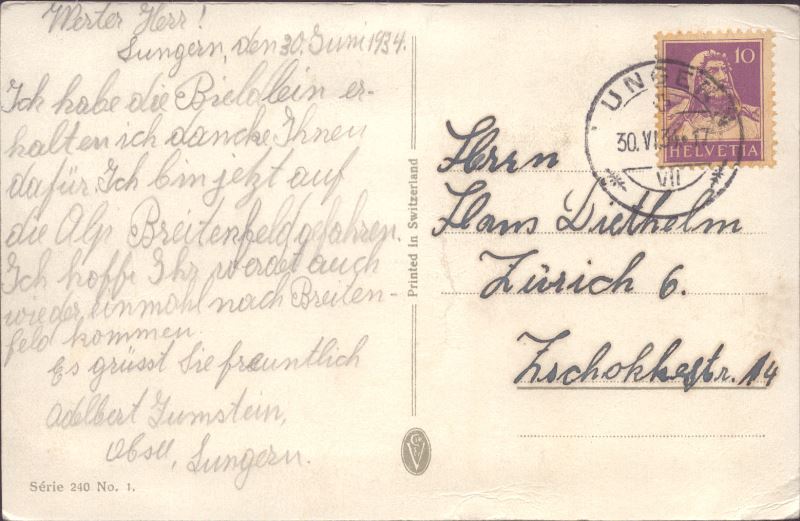 Werter Herr!
Lungern, den 30. Juni 1934.
Ich habe die Bieldlein er-
halten ich dancke Ihnen
dafür. Ich bin jetzt auf
die Alp Breitenfeld gefahren.
Ich hoffe Ihr werdet auch
wieder einmahl nach Breiten-
feld kommen.
Es grüsst Sie freuntlich
Adelbert Zumstein,
Obsee, Lungern.
Série 240 No. 1.
Printed in Switzerland
10
HELVETIA
LUNGERN
30. VI. 34. 17
VII
Herrn
Hans Diethelm
Zürich 6.
Zschokkestr. 14